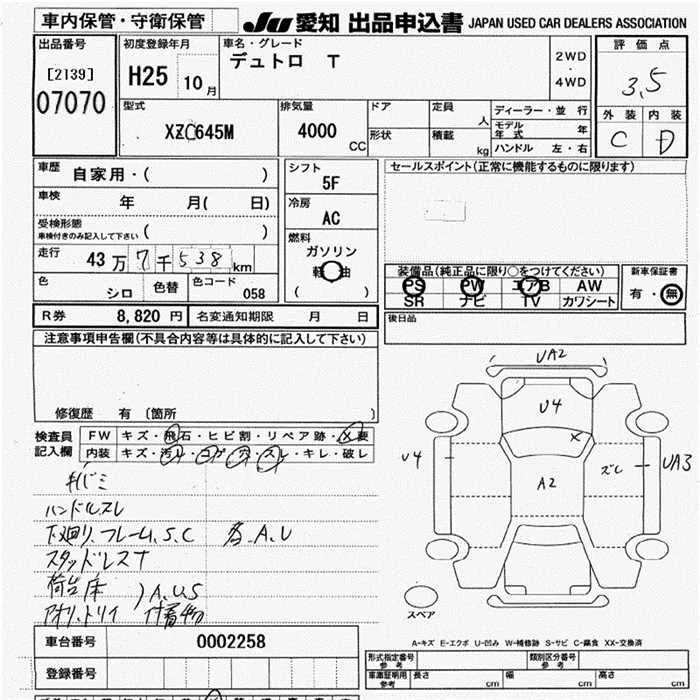 車内保管・守衛保管
JU 愛知 出品申込書 JAPAN USED CAR DEALERS ASSOCIATION
出品番号 初度登録年月 車名・グレード 評価点
[2139] H25 10月 デュトロ T 2WD・4WD 3,5
07070
型式 排気量 ドア 定員 人 ディーラー・並行 外装 内装
XZC645M 4000 CC 形状 積載 kg モデル年式 年 C D
ハンドル 左・右
車歴 自家用・( ) シフト 5F セールスポイント(正常に機能するものに限ります)
車検 年 月( 日) 冷房 AC
受検形態 車検付きのみ記入して下さい ( )
走行 43万7千538km 燃料 ガソリン 軽油 ( )
色 シロ 色替 色コード 058
装備品(純正品に限り○をつけてください) 新車保証書
PS PW エアB AW 有・無
SR ナビ TV カワシート
R券 8,820円 名変通知期限 月 日 後日品
注意事項申告欄(不具合内容等は具体的に記入して下さい)
修復歴 有 〔箇所 〕
検査員記入欄 FW キズ・飛石・ヒビ割・リペア跡・X要
内装 キズ・汚レ・コゲ・穴・スレ・キレ・破レ
キバミ
ハンドルスレ
下廻り.フレーム.S.C 各.A.U
スタッドレスT
荷台床 )A.U.S
アオリ.トリイ 付着物
UA2
U4
X
U4
A2
ズレ
UA3
スペア
A-キズ E-エクボ U-凹み W-補修跡 S-サビ C-腐食 XX-交換済
車台番号 0002258
登録番号
形式指定番号 参考 類別区分番号 参考
車庫証明用 参考 長さ cm 幅 cm 高さ cm